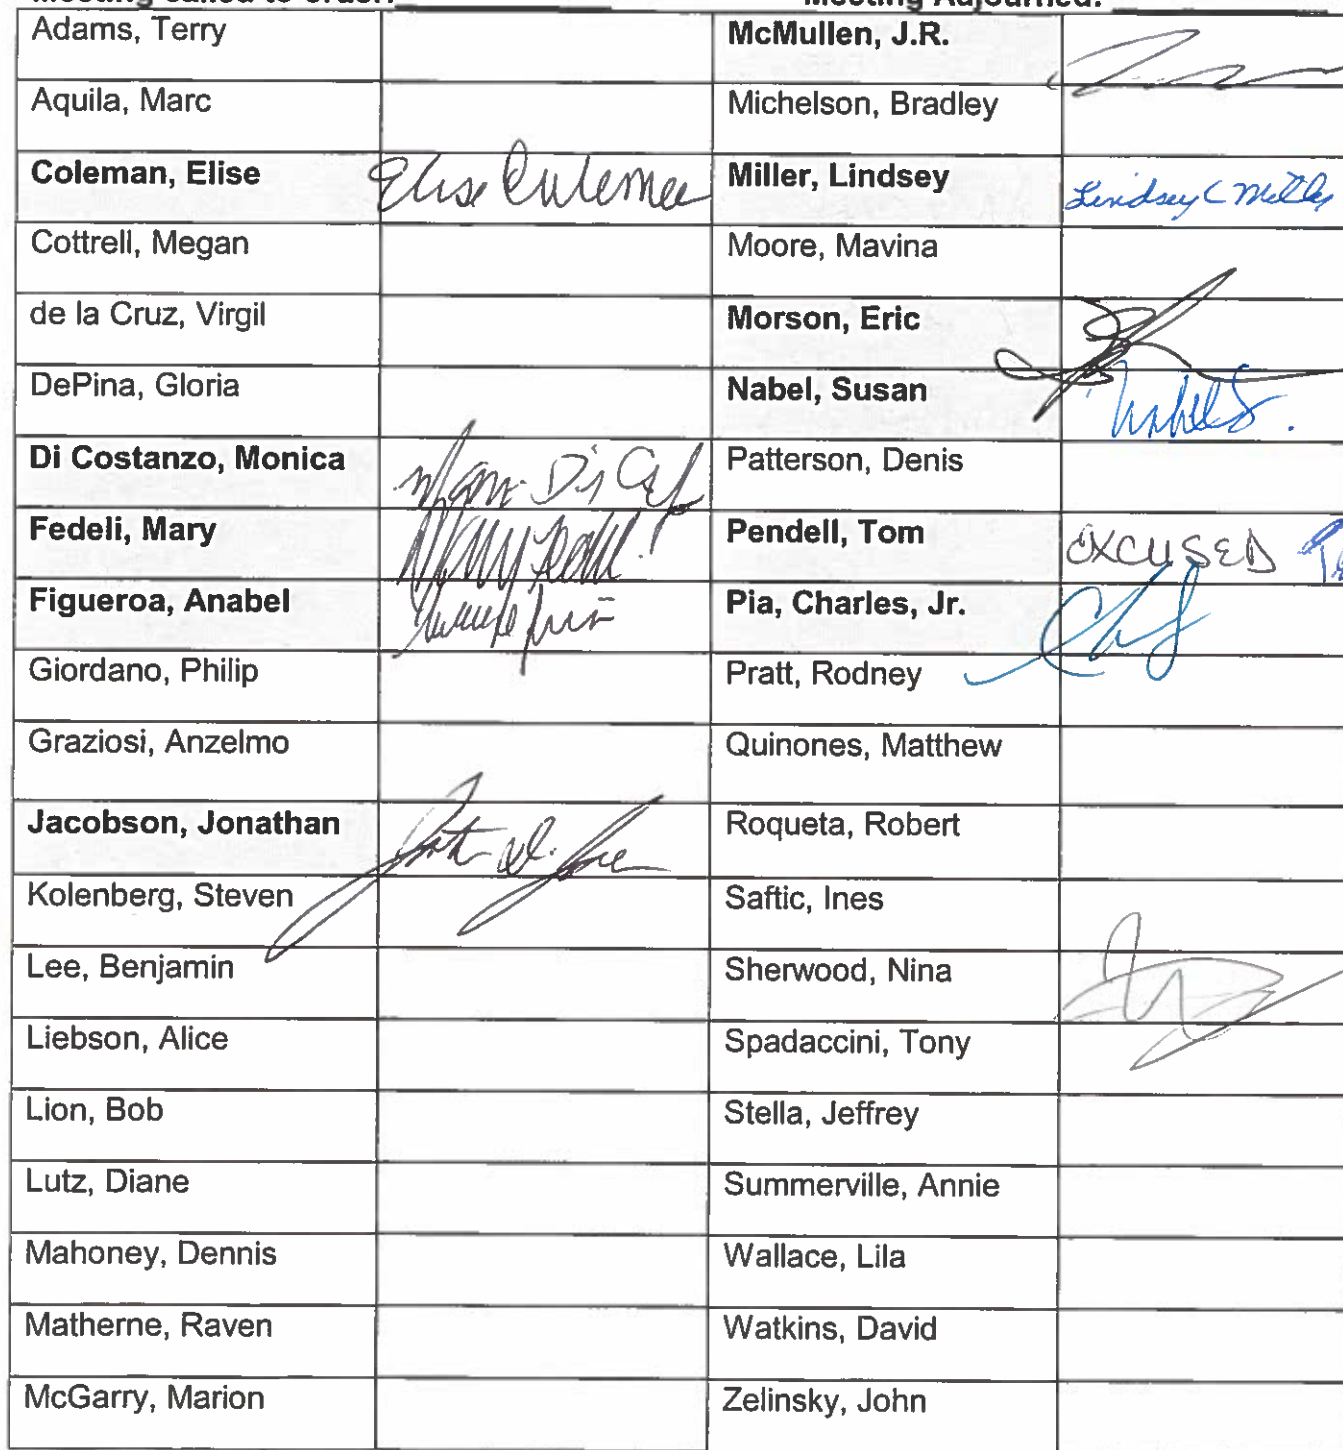 Meeting called to order:
Meeting Adjourned:
Adams, Terry
McMullen, J.R.
Aquila, Marc
Michelson, Bradley
Coleman, Elise Elise Coleman
Miller, Lindsey Lindsey C Miller
Cottrell, Megan
Moore, Mavina
de la Cruz, Virgil
Morson, Eric
DePina, Gloria
Nabel, Susan Nabel S.
Di Costanzo, Monica
Patterson, Denis
Fedeli, Mary Mary Fedeli
Pendell, Tom EXCUSED
Figueroa, Anabel
Pia, Charles, Jr.
Giordano, Philip
Pratt, Rodney
Graziosi, Anzelmo
Quinones, Matthew
Jacobson, Jonathan
Roqueta, Robert
Kolenberg, Steven
Saftic, Ines
Lee, Benjamin
Sherwood, Nina
Liebson, Alice
Spadaccini, Tony
Lion, Bob
Stella, Jeffrey
Lutz, Diane
Summerville, Annie
Mahoney, Dennis
Wallace, Lila
Matherne, Raven
Watkins, David
McGarry, Marion
Zelinsky, John